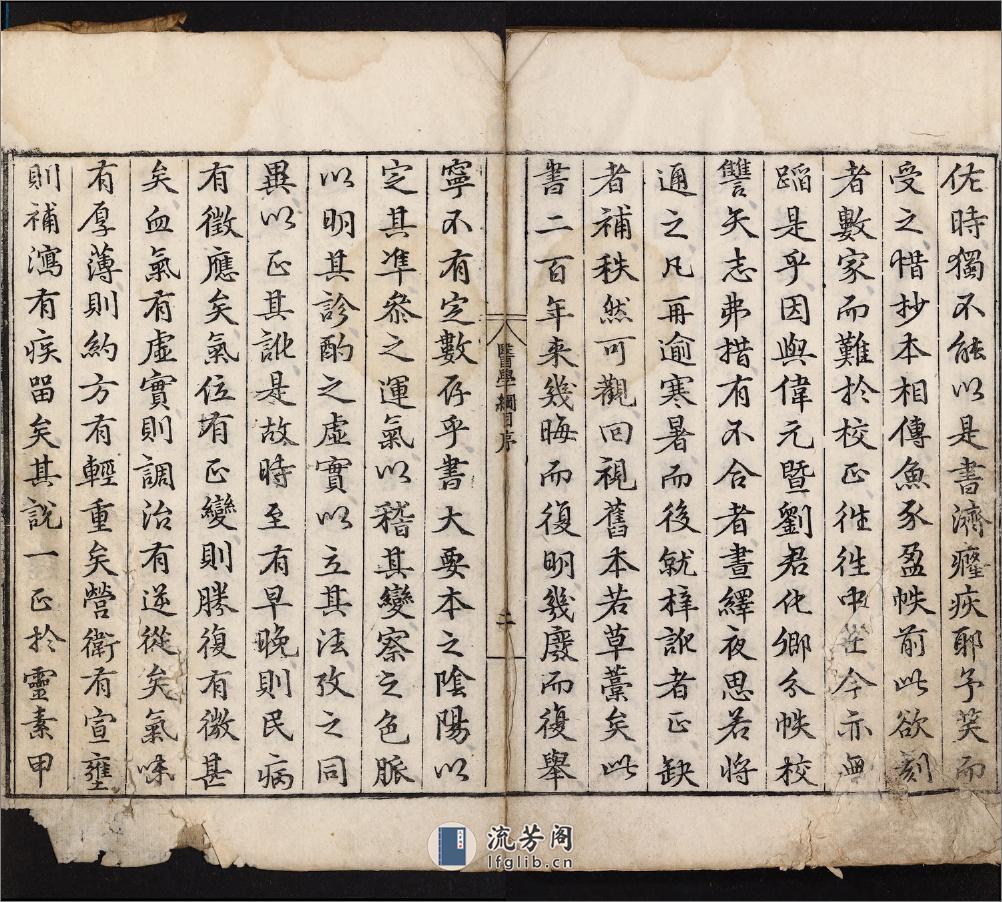 佐時獨不能以是書濟癃疾耶予笑而
受之惜抄本相傳魚豕盈帙前此欲刻
者數家而難於校正徃徃中茫今亦無
蹈是乎因與偉元暨劉君化卿分帙校
讐矢志弗措有不合者晝繹夜思若將
通之凡再逾寒暑而後就梓訛者正缺
者補秩然可觀回視舊本若草藁矣此
書二百年來幾晦而復明幾廢而復舉
醫學綱目序
二
寧不有定數存乎書大要本之陰陽以
定其準叅之運氣以稽其變察之色脈
以明其診酌之虛實以立其法攷之同
異以正其訛是故時至有早晚則民病
有徵應矣氣位有正變則勝復有微甚
矣血氣有虛實則調治有逆從矣氣味
有厚薄則約方有輕重矣營衛有宣壅
則補瀉有疾留矣其說一正於靈素甲
流芳阁
lfglib.cn